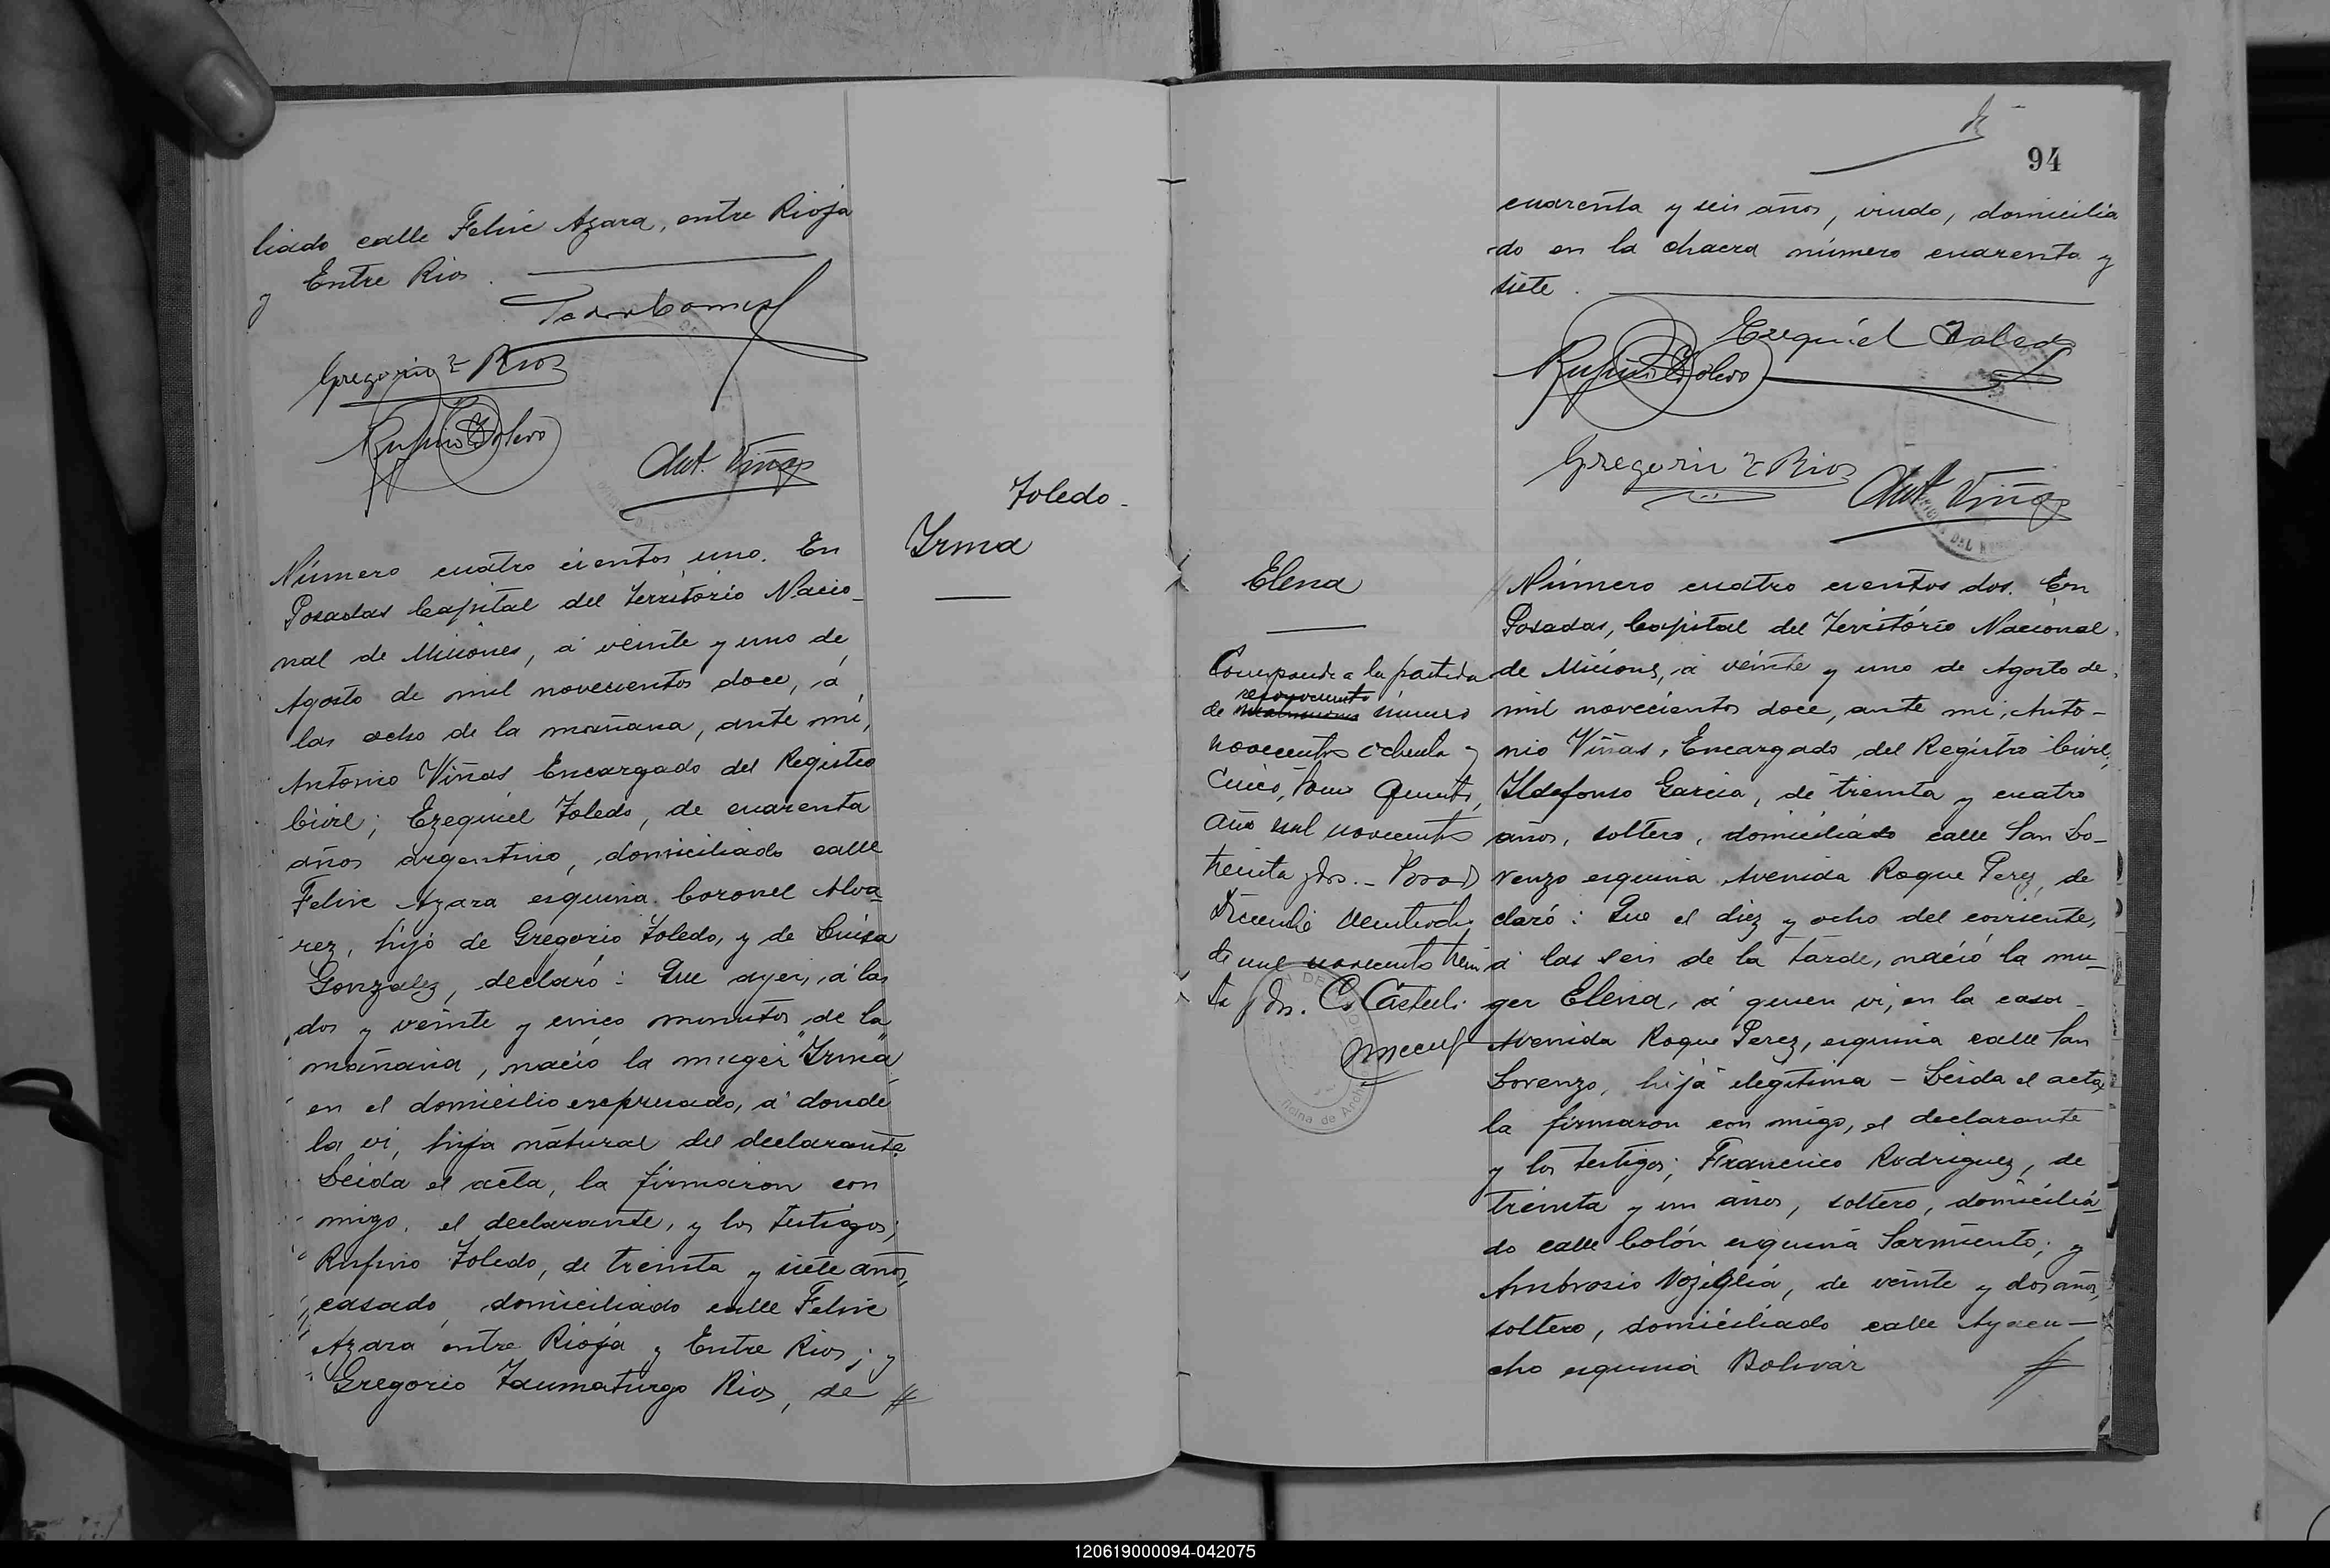 liado calle Felix Azara, entre Rioja
y Entre Rios.
Gregorio T Rios
Rufino Toledo
Ant. Viñas
Toledo-
Irma
Número cuatro cientos uno. En
Posadas Capital del Territorio Nacio-
nal de Misiones, á veinte y uno de
Agosto de mil novecientos doce, á
las ocho de la mañana, ante mi,
Antonio Viñas Encargado del Registro
Civil; Ezequiel Toledo, de cuarenta
años argentino, domiciliado calle
Felix Azara esquina Coronel Alva-
rez, hijo de Gregorio Toledo, y de Luisa
Gonzalez, declaró: Que ayer, á las
dos y veinte y cinco minutos de la
mañana, nació la muger "Irma"
en el domicilio expresado, á donde
la vi, hija natural del declarante.
Leida el acta, la firmaron con
migo, el declarante, y los testigos;
Rufino Toledo, de treinta y siete años,
casado, domiciliado calle Felix
Azara entre Rioja y Entre Rios; y
Gregorio Taumaturgo Rios, de #
94
cuarenta y seis años, viudo, domicilia
-do en la chacra número cuarenta y
siete.
Ezequiel Toledo
Rufino Toledo
Gregorio T Rios
Ant Viñas
Elena
Corresponde a la partida
de reconocimiento número
novecientos ochenta y
cinco, tomo quinto,
año mil novecientos
treinta y dos.- Posadas
Diciembre veintiocho
de mil novecientos trein
ta y dos.
Número cuatro cientos dos. En
Posadas, Capital del Territorio Nacional
de Misiones, á veinte y uno de Agosto de
mil novecientos doce, ante mi, Anto-
nio Viñas, Encargado del Registro Civil;
Ildefonso Garcia, de treinta y cuatro
años, soltero, domiciliado calle San Lo-
renzo esquina Avenida Roque Perez, de
claró: Que el diez y ocho del corriente,
á las seis de la tarde, nació la mu-
ger Elena, á quien vi, en la casa
Avenida Roque Perez, esquina calle San
Lorenzo, hija elegitima - Leida el acta,
la firmaron con migo, el declarante
y los testigos; Francisco Rodriguez, de
treinta y un años, soltero, domicilia-
do calle Colón esquina Sarmiento; y
Ambrosio, de veinte y dos años,
soltero, domiciliado calle Ayacu-
cho esquina Bolivar #
120619000094-042075